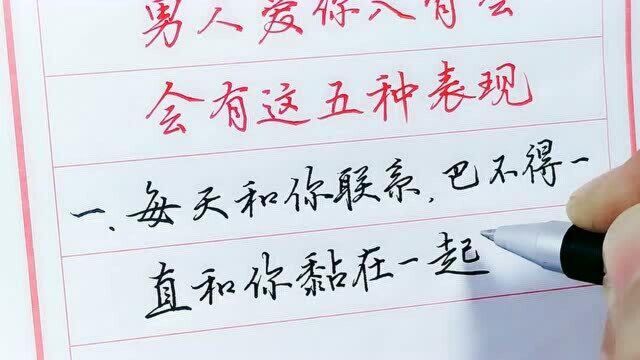 男人爱你入骨会
会有这五种表现
一、每天和你联系,巴不得一
直和你黏在一起